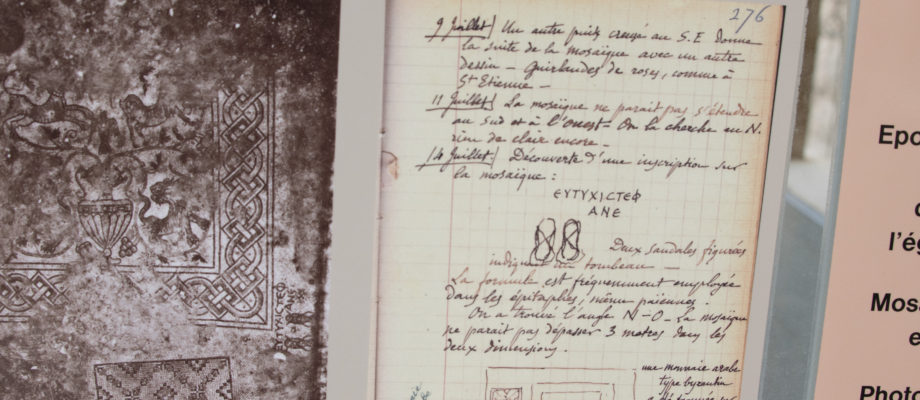 276
9 Juillet / Un autre puits creusé au S.E donne
la suite de la mosaïque avec un autre
dessin – Guirlandes de roses, comme à
St Etienne –
11 Juillet / La mosaïque ne parait pas s'étendre
au Sud et à l'ouest – On la cherche au N.
rien de clair encore –
14 Juillet / Découverte d'une inscription sur
la mosaïque :
ΕΥΤΥΧΙCΤЄΦ
ΑΝΕ
Deux sandales figurées
indiquent un tombeau –
La formule est fréquemment employée
dans les épitaphes, même païennes.
On a trouvé l'angle N–O – La mosaïque
ne parait pas dépasser 3 mètres dans les
deux dimensions.
une monnaie arabe
type byzantin
ΕΥΤΥΧΙCΤЄΦ
ΑΝΕ
Epo
l'ég
Mosa
e
Photo